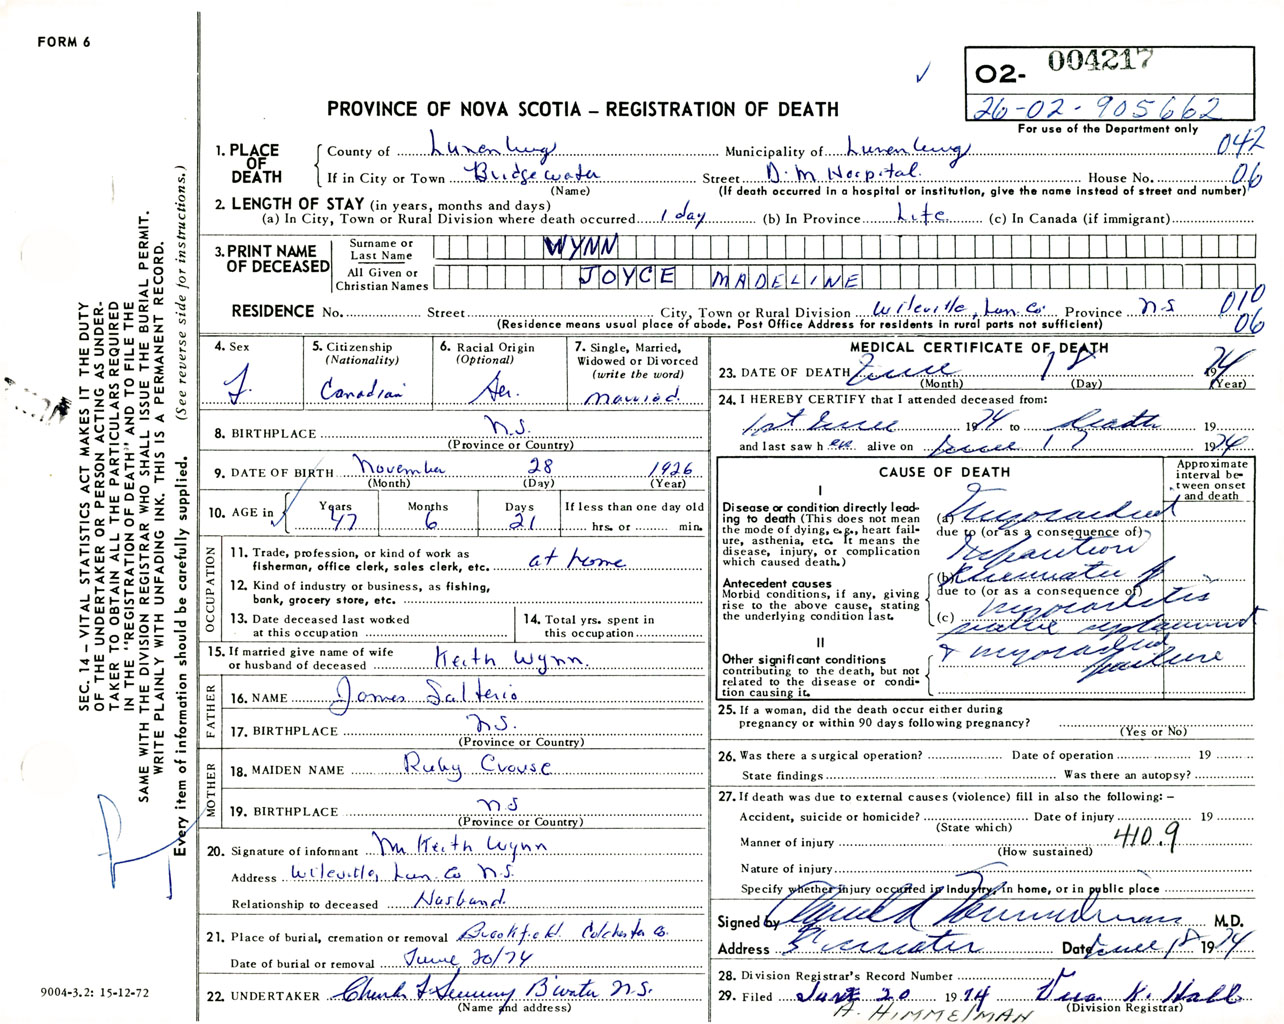 FORM 6
02- 004217
26-02-905662
For use of the Department only
PROVINCE OF NOVA SCOTIA – REGISTRATION OF DEATH
1. PLACE OF DEATH
County of Lunenburg Municipality of Lunenburg 042
If in City or Town Bridgewater Street D. M Hospital House No. 06
(Name) (If death occurred in a hospital or institution, give the name instead of street and number)
2. LENGTH OF STAY (in years, months and days)
(a) In City, Town or Rural Division where death occurred 1 day (b) In Province Life (c) In Canada (if immigrant)
3. PRINT NAME OF DECEASED
Surname or Last Name WYNN
All Given or Christian Names JOYCE MADELINE
RESIDENCE No. Street City, Town or Rural Division Wileville, Lun. Co. Province N.S 010
(Residence means usual place of abode. Post Office Address for residents in rural parts not sufficient) 06
4. Sex F.
5. Citizenship (Nationality) Canadian
6. Racial Origin (Optional) Ger.
7. Single, Married, Widowed or Divorced (write the word) married.
8. BIRTHPLACE N.S.
(Province or Country)
9. DATE OF BIRTH November 28 1926
(Month) (Day) (Year)
10. AGE in Years 47 Months 6 Days 21 If less than one day old hrs. or min.
OCCUPATION
11. Trade, profession, or kind of work as fisherman, office clerk, sales clerk, etc. at home
12. Kind of industry or business, as fishing, bank, grocery store, etc.
13. Date deceased last worked at this occupation
14. Total yrs. spent in this occupation
15. If married give name of wife or husband of deceased Keith Wynn.
FATHER
16. NAME James Salterio
17. BIRTHPLACE N.S.
(Province or Country)
MOTHER
18. MAIDEN NAME Ruby Crouse
19. BIRTHPLACE N S
(Province or Country)
20. Signature of informant M Keith Wynn
Address Wileville, Lun. Co N.S.
Relationship to deceased Husband.
21. Place of burial, cremation or removal Brookfield Colchester Co.
Date of burial or removal June 20/74
22. UNDERTAKER B'water N.S.
(Name and address)
MEDICAL CERTIFICATE OF DEATH
23. DATE OF DEATH June 18 1974
(Month) (Day) (Year)
24. I HEREBY CERTIFY that I attended deceased from:
1st June 1974 to death 19
and last saw h er alive on June 17 1974
CAUSE OF DEATH
Approximate interval between onset and death
I
Disease or condition directly leading to death (This does not mean the mode of dying, e.g., heart failure, asthenia, etc. It means the disease, injury, or complication which caused death.)
(a) Myocardial
due to (or as a consequence of)
Antecedent causes
Morbid conditions, if any, giving rise to the above cause, stating the underlying condition last.
(b)
due to (or as a consequence of)
(c) myocarditis
II
Other significant conditions contributing to the death, but not related to the disease or condition causing it.
& myocardial failure
25. If a woman, did the death occur either during pregnancy or within 90 days following pregnancy?
(Yes or No)
26. Was there a surgical operation? Date of operation 19
State findings Was there an autopsy?
27. If death was due to external causes (violence) fill in also the following: –
Accident, suicide or homicide? Date of injury 19
(State which)
Manner of injury 410.9
(How sustained)
Nature of injury
Specify whether injury occurred in Industry, in home, or in public place
Signed by M.D.
Address B'water Date June 18 1974
28. Division Registrar's Record Number
29. Filed June 20 1974
(Division Registrar)
A. HIMMELMAN
SEC. 14 – VITAL STATISTICS ACT MAKES IT THE DUTY
OF THE UNDERTAKER OR PERSON ACTING AS UNDER-
TAKER TO OBTAIN ALL THE PARTICULARS REQUIRED
IN THE "REGISTRATION OF DEATH" AND TO FILE THE
SAME WITH THE DIVISION REGISTRAR WHO SHALL ISSUE THE BURIAL PERMIT.
WRITE PLAINLY WITH UNFADING INK. THIS IS A PERMANENT RECORD.
Every item of information should be carefully supplied. (See reverse side for instructions.)
9004-3.2: 15-12-72